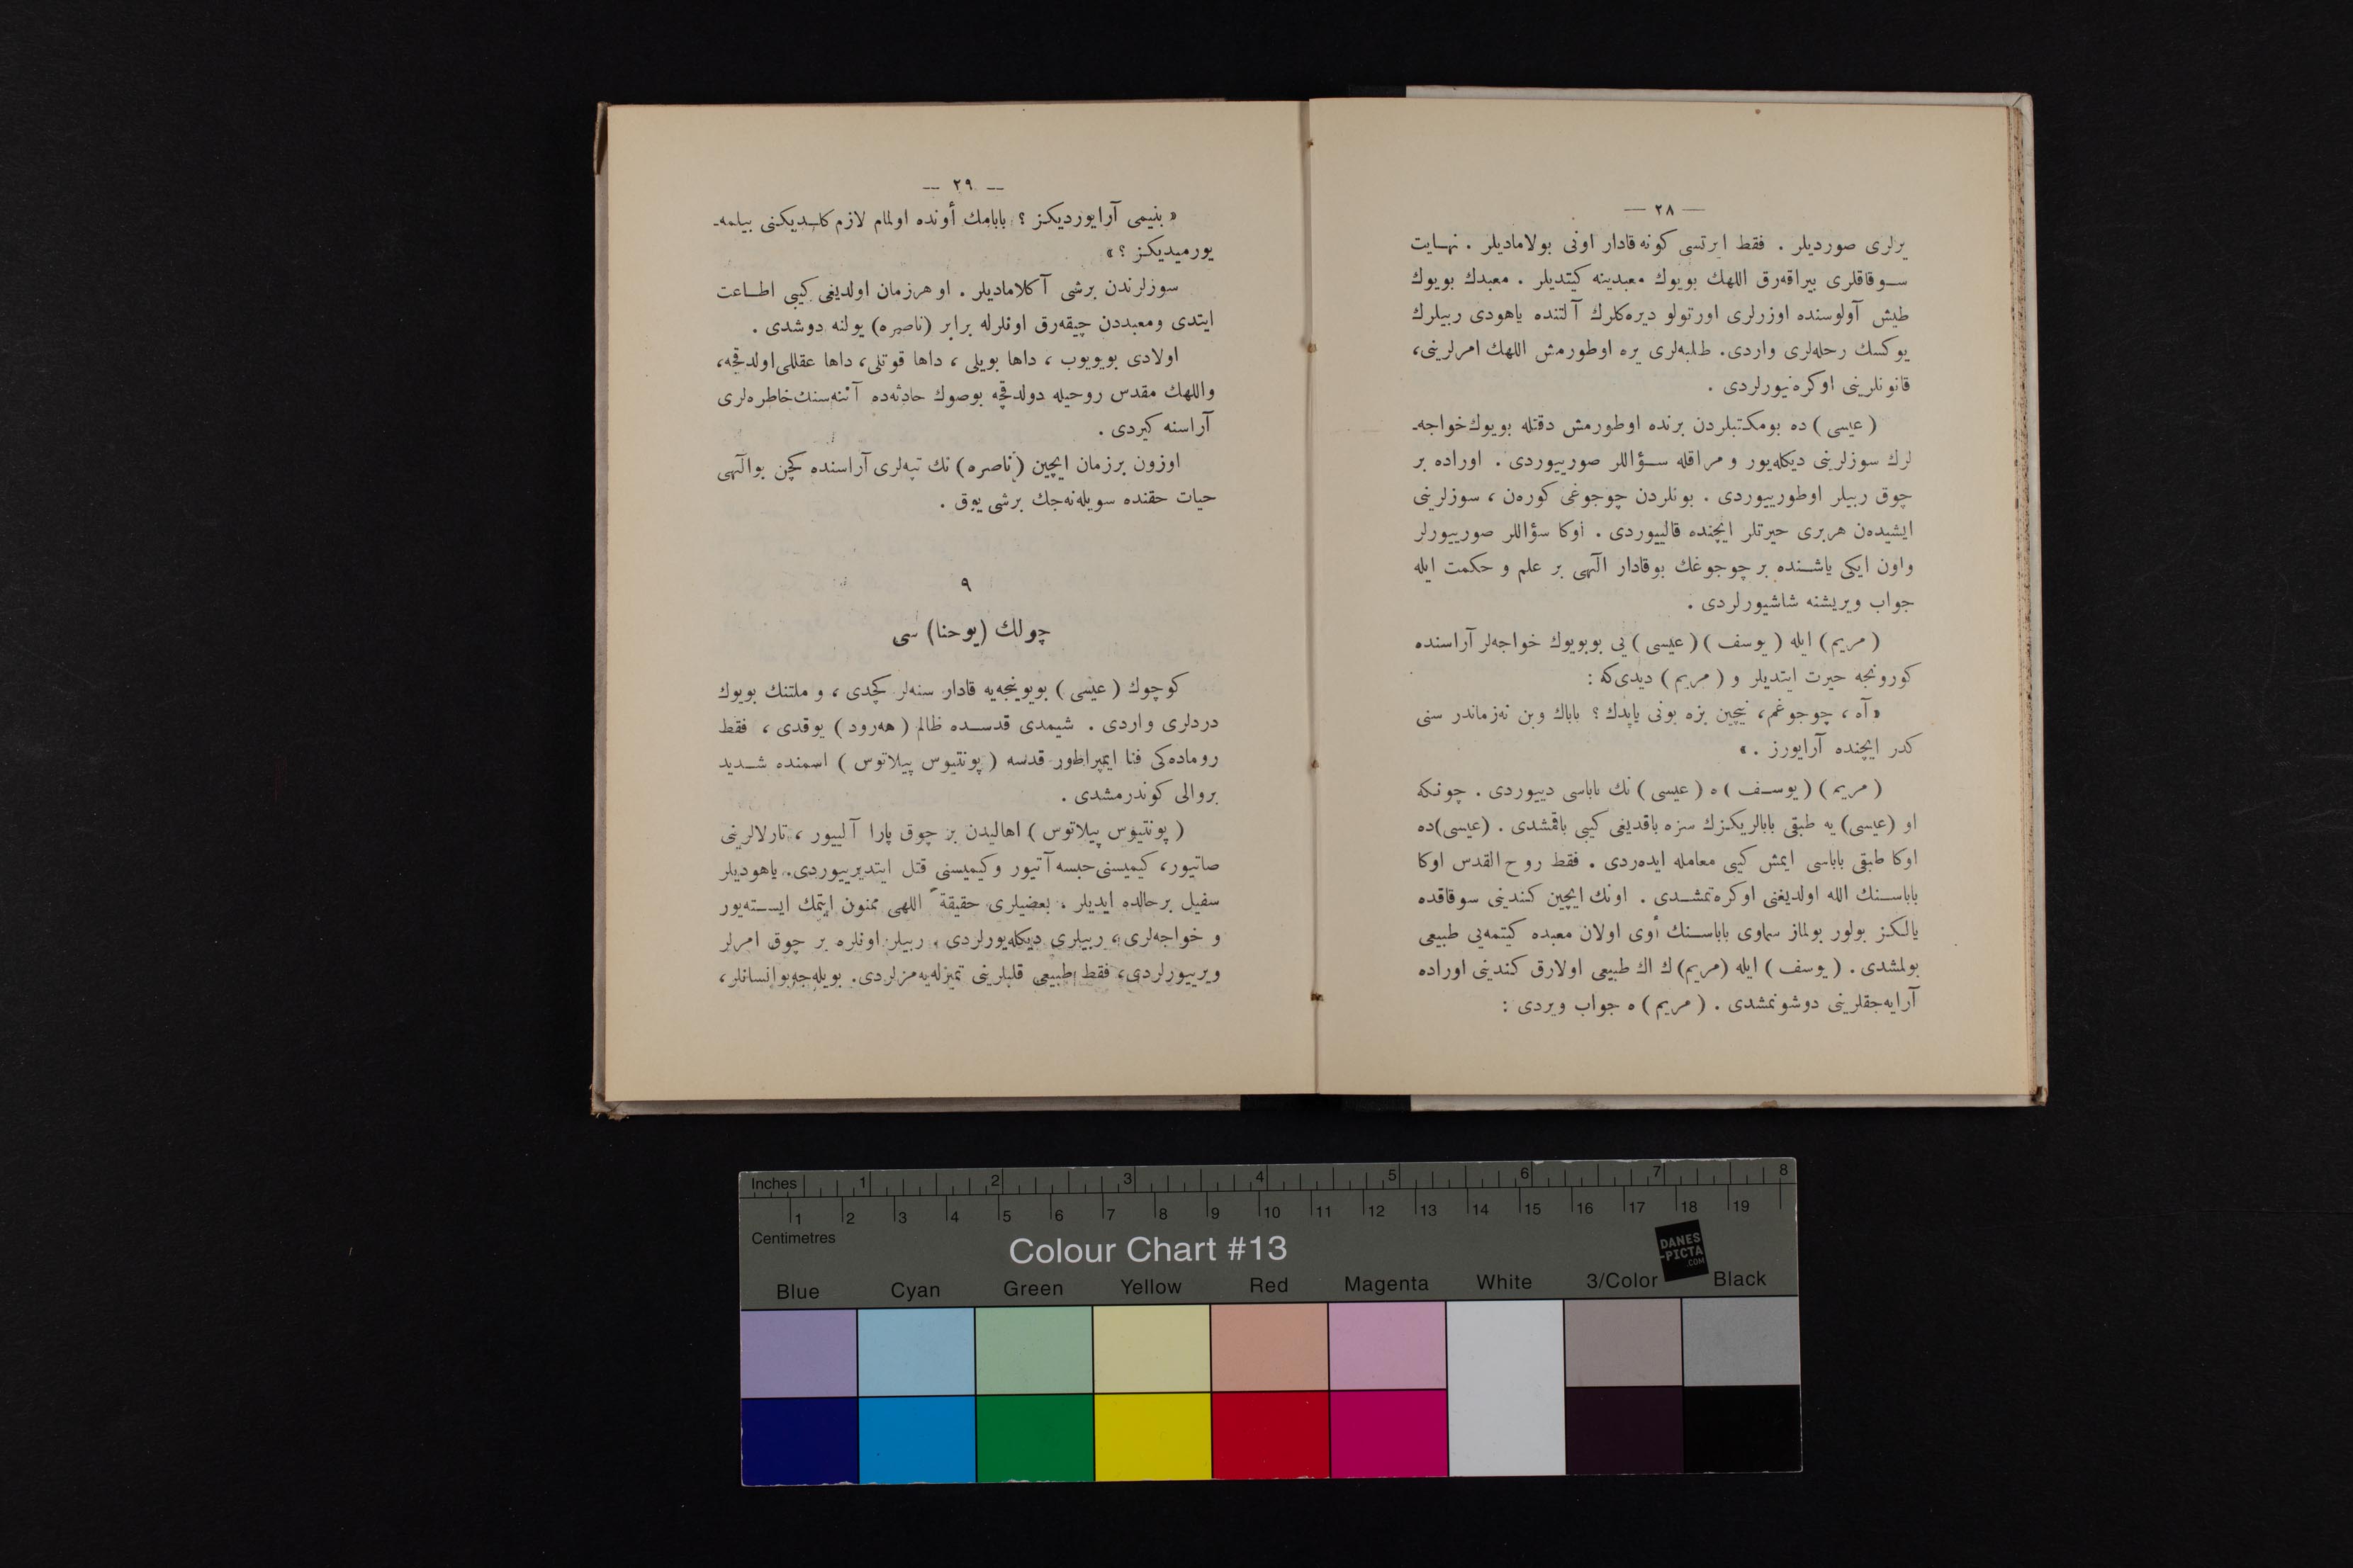 — ٢٨ —
يرلرى صورديلر . فقط ايرتسى كونه قادار اونى بولاماديلر . نهايت
سوقاقلرى بيراقه‌رق اللهك بويوك معبدينه كيتديلر . معبدك بويوك
طيش آولوسنده اوزرلرى اورتولو ديره‌كلرك آلتنده ياهودى ربيلرك
يوكسك رحله‌لرى واردى. طلبه‌لرى يره اوطورمش اللهك امرلرينى،
قانونلرينى اوكره‌نيورلردى .
(عيسى) ده بومكتبلردن برنده اوطورمش دقتله بويوك خواجه‌ـ
لرك سوزلرينى ديكله‌يور و مراقله سؤاللر صورييوردى . اوراده بر
چوق ربيلر اوطورييوردى . بونلردن چوجوغى كوره‌ن ، سوزلرينى
ايشيده‌ن هربرى حيرتلر ايچنده قالييوردى . اوكا سؤاللر صورييورلر
واون ايكى ياشنده بر چوجوغك بوقادار آلهى بر علم و حكمت ايله
جواب ويريشنه شاشيورلردى .
(مريم) ايله (يوسف) (عيسى) يى بوبويوك خواجه‌لر آراسنده
كورونجه حيرت ايتديلر و (مريم) ديدى‌كه :
« آه ، چوجوغم، نيچين بزه بونى ياپدك ؟ باباك وبن نه‌زماندر سنى
كدر ايچنده آرايورز . »
(مريم) (يوسف) ه (عيسى) نك باباسى دييوردى . چونكه
او (عيسى) يه طبقى بابالريكزك سزه باقديغى كيبى باقمشدى . (عيسى) ده
اوكا طبقى باباسى ايمش كيبى معامله ايده‌ردى . فقط روح القدس اوكا
باباسنك الله اولديغنى اوكره‌تمشدى . اونك ايچين كندينى سوقاقده
يالكز بولور بولماز سماوى باباسنك أوى اولان معبده كيتمه‌يى طبيعى
بولمشدى . (يوسف) ايله (مريم) ك اك طبيعى اولارق كندينى اوراده
آرايه‌جقلرينى دوشونمشدى . (مريم) ه جواب ويردى :
— ٢٩ —
« بنيمى آرايورديكز ؟ بابامك أونده اولمام لازم كلديكنى بيلمه‌ـ
يورميديكز ؟ »
سوزلرندن برشى آكلاماديلر . او هرزمان اولديغى كيبى اطاعت
ايتدى ومعبددن چيقه‌رق اونلرله برابر (ناصره) يولنه دوشدى .
اولادى بويويوب ، داها بويلى ، داها قوتلى، داها عقللى اولدقجه،
واللهك مقدس روحيله دولدقجه بوصوك حادثه‌ده آننه‌سنك خاطره‌لرى
آراسنه كيردى .
اوزون برزمان ايچين (ناصره) نك تپه‌لرى آراسنده كچن بوآلهى
حيات حقنده سويله‌نه‌جك برشى يوق .
٩
چولك (يوحنا) سى
كوچوك (عيسى) بويويونجه‌يه قادار سنه‌لر كچدى ، و ملتنك بويوك
دردلرى واردى . شيمدى قدسده ظالم (هه‌رود) يوقدى ، فقط
روماده‌كى فنا ايمپراطور قدسه (پونتيوس پيلاتوس) اسمنده شديد
بروالى كوندرمشدى .
(پونتيوس پيلاتوس) اهاليدن بر چوق پارا آلييور ، تارلالرينى
صاتيور، كيميسنى حبسه آتيور وكيميسنى قتل ايتديرييوردى. ياهوديلر
سفيل برحالده ايديلر ، بعضيلرى حقيقةً اللهى ممنون ايتمك ايسته‌يور
و خواجه‌لرى، ربيلرى ديكله‌يورلردى . ربيلر اونلره بر چوق امرلر
ويرييورلردى، فقط طبيعى قلبلرينى تميزله‌يه‌مزلردى. بويله‌جه‌بوانسانلر،
Inches 1 2 3 4 5 6 7 8
1 2 3 4 5 6 7 8 9 10 11 12 13 14 15 16 17 18 19
Centimetres
Colour Chart #13
DANES
-PICTA
.COM
Blue Cyan Green Yellow Red Magenta White 3/Color Black